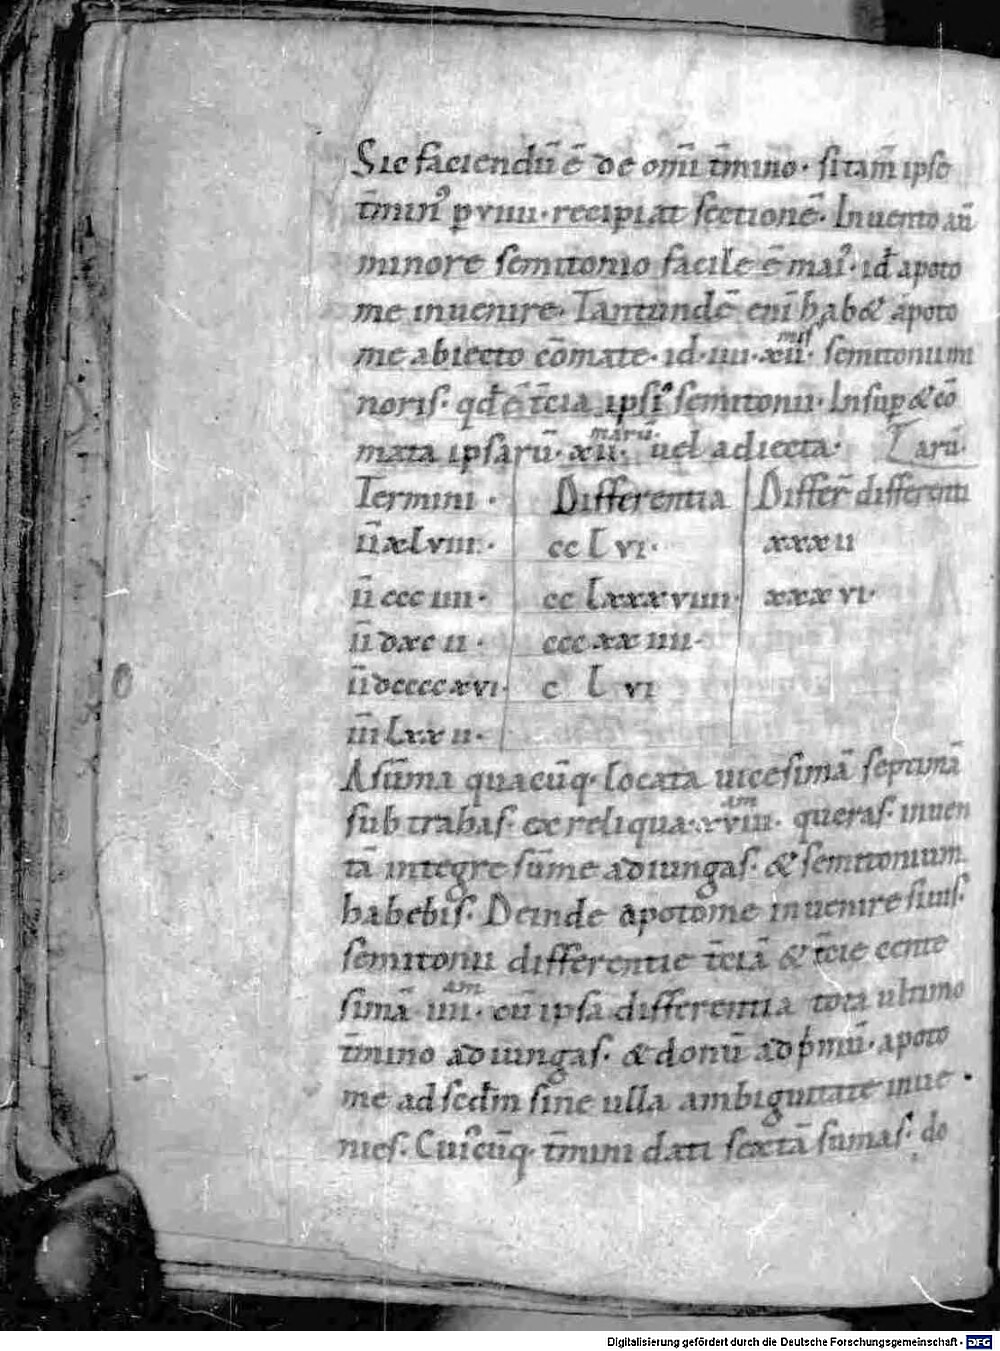 Sic faciendū ē de omī t̄mino· si tam̄ ipse
t̄min᾽ p viiii· recipiat sectionē· Inuento aū
minore semitonio facile ē mai᾽· id̄ apoto
me inuenire· Tantundē enī hab& apoto
me abiecto cōmate· id· iiii· xiiᵐⁱˢ· semitonii mi
noris· qd̄ ē t̄cia ipsi᾽ semitonii· Insup & cō
mata ipsarū· xiiᵐᵃʳᵘ̄· uel adiecta·
Termini · Differentia Differ̄ differenti
arū·
īī xlviii· cc l vi· xxx ii
īī ccc iiii· cc lxxx viiii· xxx vi·
īī dxc ii · ccc xx iiii·
īī dcccc xvi· c l vi
īīī lxx ii·
A sūma quacūq· locata uicesimā septimā
subtrahas· ex reliqua· xviiiᵃᵐ· queras· inuen
tā integre sūme adiungas· & semitonium
habebis· Deinde apotome inuenire si uis·
semitonii differentie t̄ciā & t̄cie cente
simā iiiiᵃᵐ· cū ipsa differentia tota ultimo
t̄mino adiungas· & donū ad p̄mū· apoto
me ad scd̄m sine ulla ambiguitate inue
nies· Cui᾽cūq· t̄mini dati sextā sumas· de
Digitalisierung gefördert durch die Deutsche Forschungsgemeinschaft - DFG